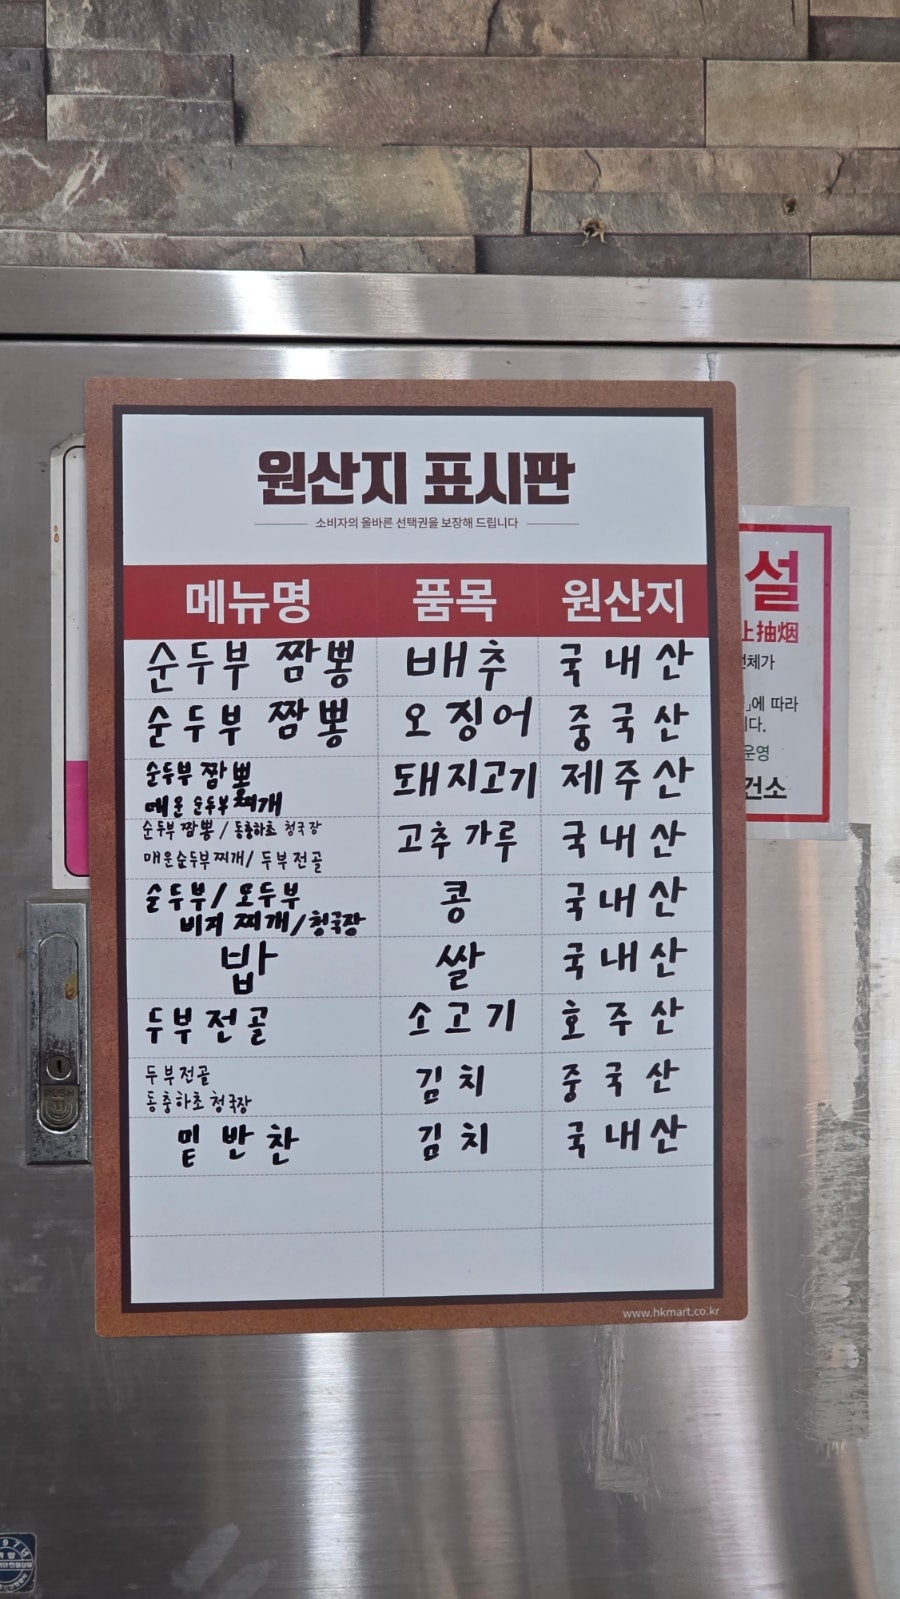 원산지 표시판
소비자의 올바른 선택권을 보장해 드립니다
메뉴명 품목 원산지
순두부 짬뽕 배추 국내산
순두부 짬뽕 오징어 중국산
순두부 짬뽕
매운 순두부 찌개 돼지고기 제주산
순두부 짬뽕 / 동충하초 청국장
매운순두부찌개 / 두부전골 고추가루 국내산
순두부 / 모두부
비지 찌개 / 청국장 콩 국내산
밥 쌀 국내산
두부전골 소고기 호주산
두부전골
동충하초 청국장 김치 중국산
밑반찬 김치 국내산
www.hkmart.co.kr
설
止抽烟
에 따라
운영
건소
PUSH